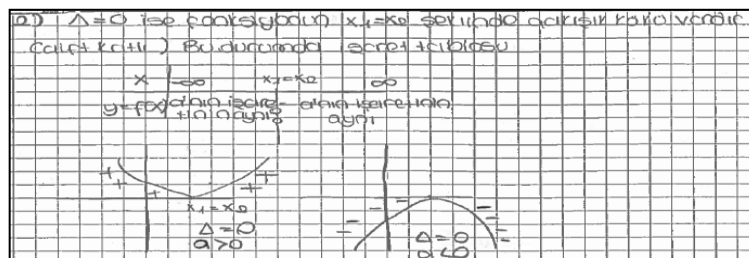 Δ=0 ise fonksiyonun x₁=x₂ şeklinde çakışık kökü vardır.
(çift katlı) Bu durumda işaret tablosu
x -∞ x₁=x₂ ∞
y=f(x) a'nın işare- a'nın işaretinin
tinin aynı 0 aynı
+ + + + + +
x₁=x₂
Δ=0
a>0
- - - - - - -
Δ=0
a<0